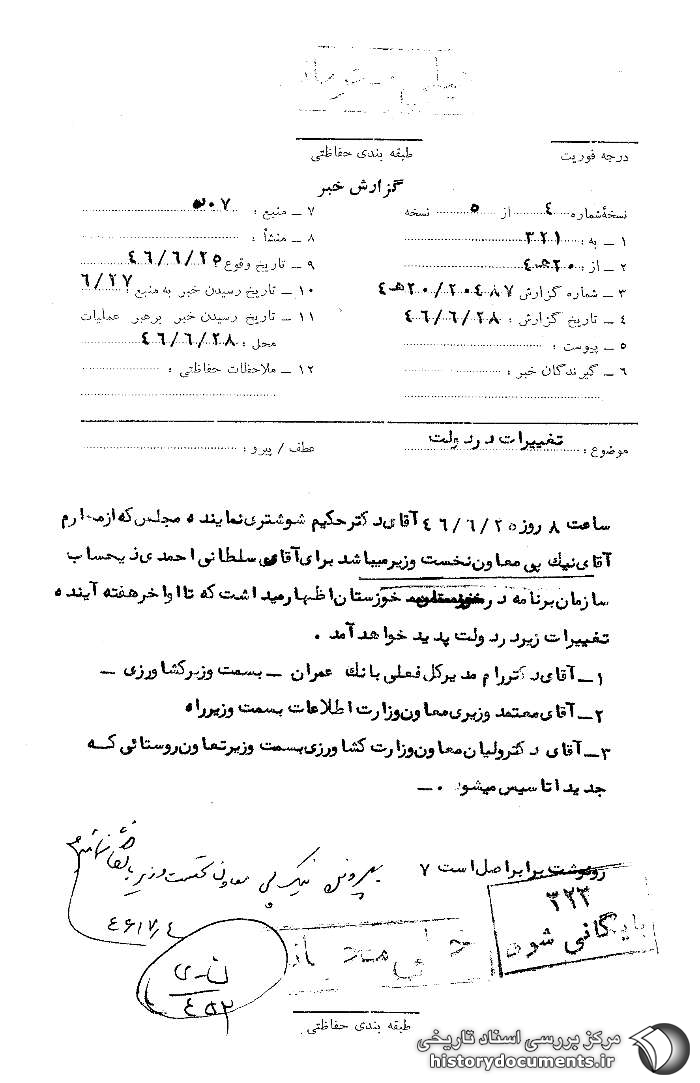 خیلی محرمانه
درجه فوریت
طبقه بندی حفاظتی
گزارش خبر
نسخهٔ شماره ۴ از ۵ نسخه
۱ ـ به : ۳۲۱
۲ ـ از : ۲۰ هـ ۴
۳ ـ شماره گزارش ۲۰۴۸۷ / ۲۰ هـ ۴
۴ ـ تاریخ گزارش : ۴۶/۶/۲۸
۵ ـ پیوست :
۶ ـ گیرندگان خبر :
۷ ـ منبع :
۸ ـ منشأ :
۹ ـ تاریخ وقوع : ۴۶/۶/۲۵
۱۰ ـ تاریخ رسیدن خبر به منبع : ۶/۲۷
۱۱ ـ تاریخ رسیدن خبر برهبر عملیات
محل : ۴۶/۶/۲۸
۱۲ ـ ملاحظات حفاظتی :
موضوع : تغییرات در دولت
عطف / پیرو :
ساعت ۸ روز ۴۶/۶/۲۵ آقای دکتر حکیم شوشتری نماینده مجلس که از محارم
آقای نیک پی معاون نخست وزیر میباشد برای آقای سلطانی احمدی ذیحساب
سازمان برنامه در خوزستان اظهار میداشت که تا اواخر هفته آینده
تغییرات زیر در دولت پدید خواهد آمد .
۱ـ آقای دکتر رام مدیر کل فعلی بانک عمران ـ بسمت وزیر کشاورزی ـ
۲ـ آقای معتمد وزیری معاون وزارت اطلاعات بسمت وزیر راه
۳ـ آقای دکتر ولیان معاون وزارت کشاورزی بسمت وزیر تعاون روستائی که
جدیدا تاسیس میشود .ـ
رونوشت برابر اصل است ۷
نیک پی معاون نخست وزیر
۴۶/۷/۴
۳۲۳
بایگانی شود
خیلی محرمانه
طبقه بندی حفاظتی
مرکز بررسی اسناد تاریخی
historydocuments.ir